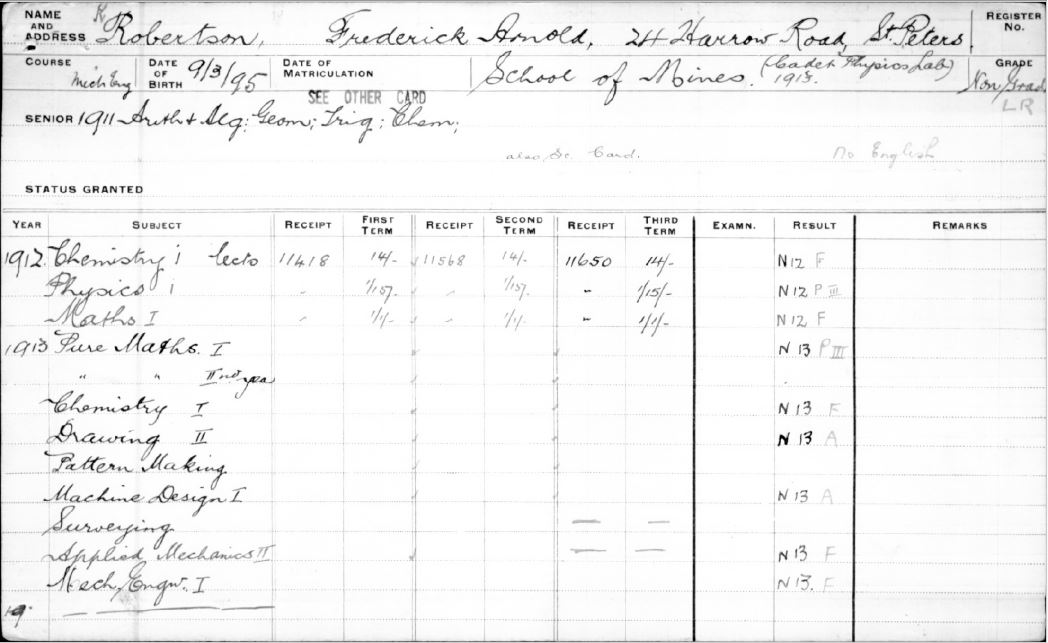 NAME AND ADDRESS K Robertson, Frederick Arnold, 24 Harrow Road, St Peters, REGISTER No.
COURSE Mech Eng DATE OF BIRTH 9/3/95 DATE OF MATRICULATION School of Mines. (Cadet Physics Lab) 1913. GRADE Non Grad.
SEE OTHER CARD LR
SENIOR 1911 Arith & Alg; Geom; Trig; Chem;
also Sc. Card. no English
STATUS GRANTED
YEAR SUBJECT RECEIPT FIRST TERM RECEIPT SECOND TERM RECEIPT THIRD TERM EXAMN. RESULT REMARKS
1912. Chemistry I lects 11418 14/- 11568 14/- 11650 14/- N12 F
Physics I " 1/15/- " 1/15/- " 1/15/- N12 P III
Maths I " 1/1/- " 1/1/- " 1/1/- N12 F
1913 Pure Maths. I N 13 P III
" " IInd year
Chemistry I N 13 F
Drawing II N 13 A
Pattern Making
Machine Design I N 13 A
Surveying — —
Applied Mechanics II — — N 13 F
Mech. Engn. I N 13. F
19